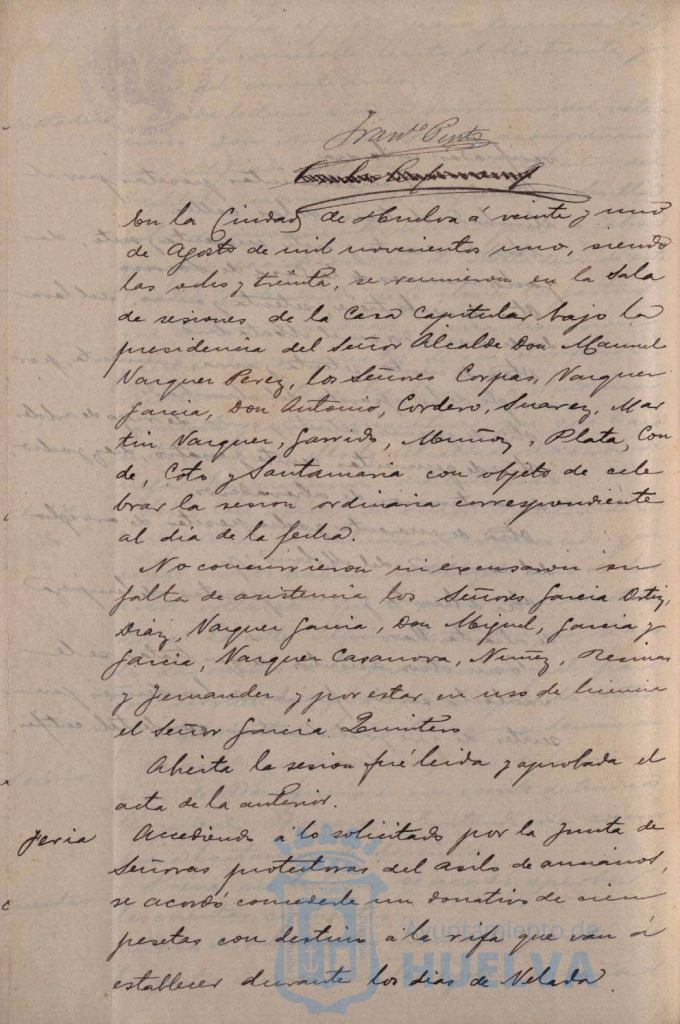 Fran.co Pinto
En la Ciudad de Huelva á veinte y uno
de Agosto de mil novecientos uno, siendo
las ocho y treinta, se reunieron en la Sala
de sesiones de la Casa Capitular bajo la
presidencia del Señor Alcalde Don Manuel
Vazquez Perez, los Señores Corpas, Vazquez
Garcia, Don Antonio, Cordero, Suarez, Mar
tin Vazquez, Garrido, Muñoz, Plata, Con
de, Coto y Santamaria con objeto de cele
brar la sesion ordinaria correspondiente
al dia de la fecha.
No concurrieron ni excusaron su
falta de asistencia los Señores Garcia Ortiz,
Diaz, Vazquez Garcia, Don Miguel, Garcia y
Garcia, Vazquez Casanova, Nuñez, Resinas
y Fernandez y por estar en uso de licencia
el Señor Garcia Quintero
Abierta la sesion fué leida y aprobada el
acta de la anterior.
Feria Accediendo á lo solicitado por la Junta de
Señoras protectoras del asilo de ancianos,
se acordó concederle un donativo de cien
pesetas con destino á la rifa que van á
establecer durante los dias de Velada.
Ayuntamiento de
HUELVA